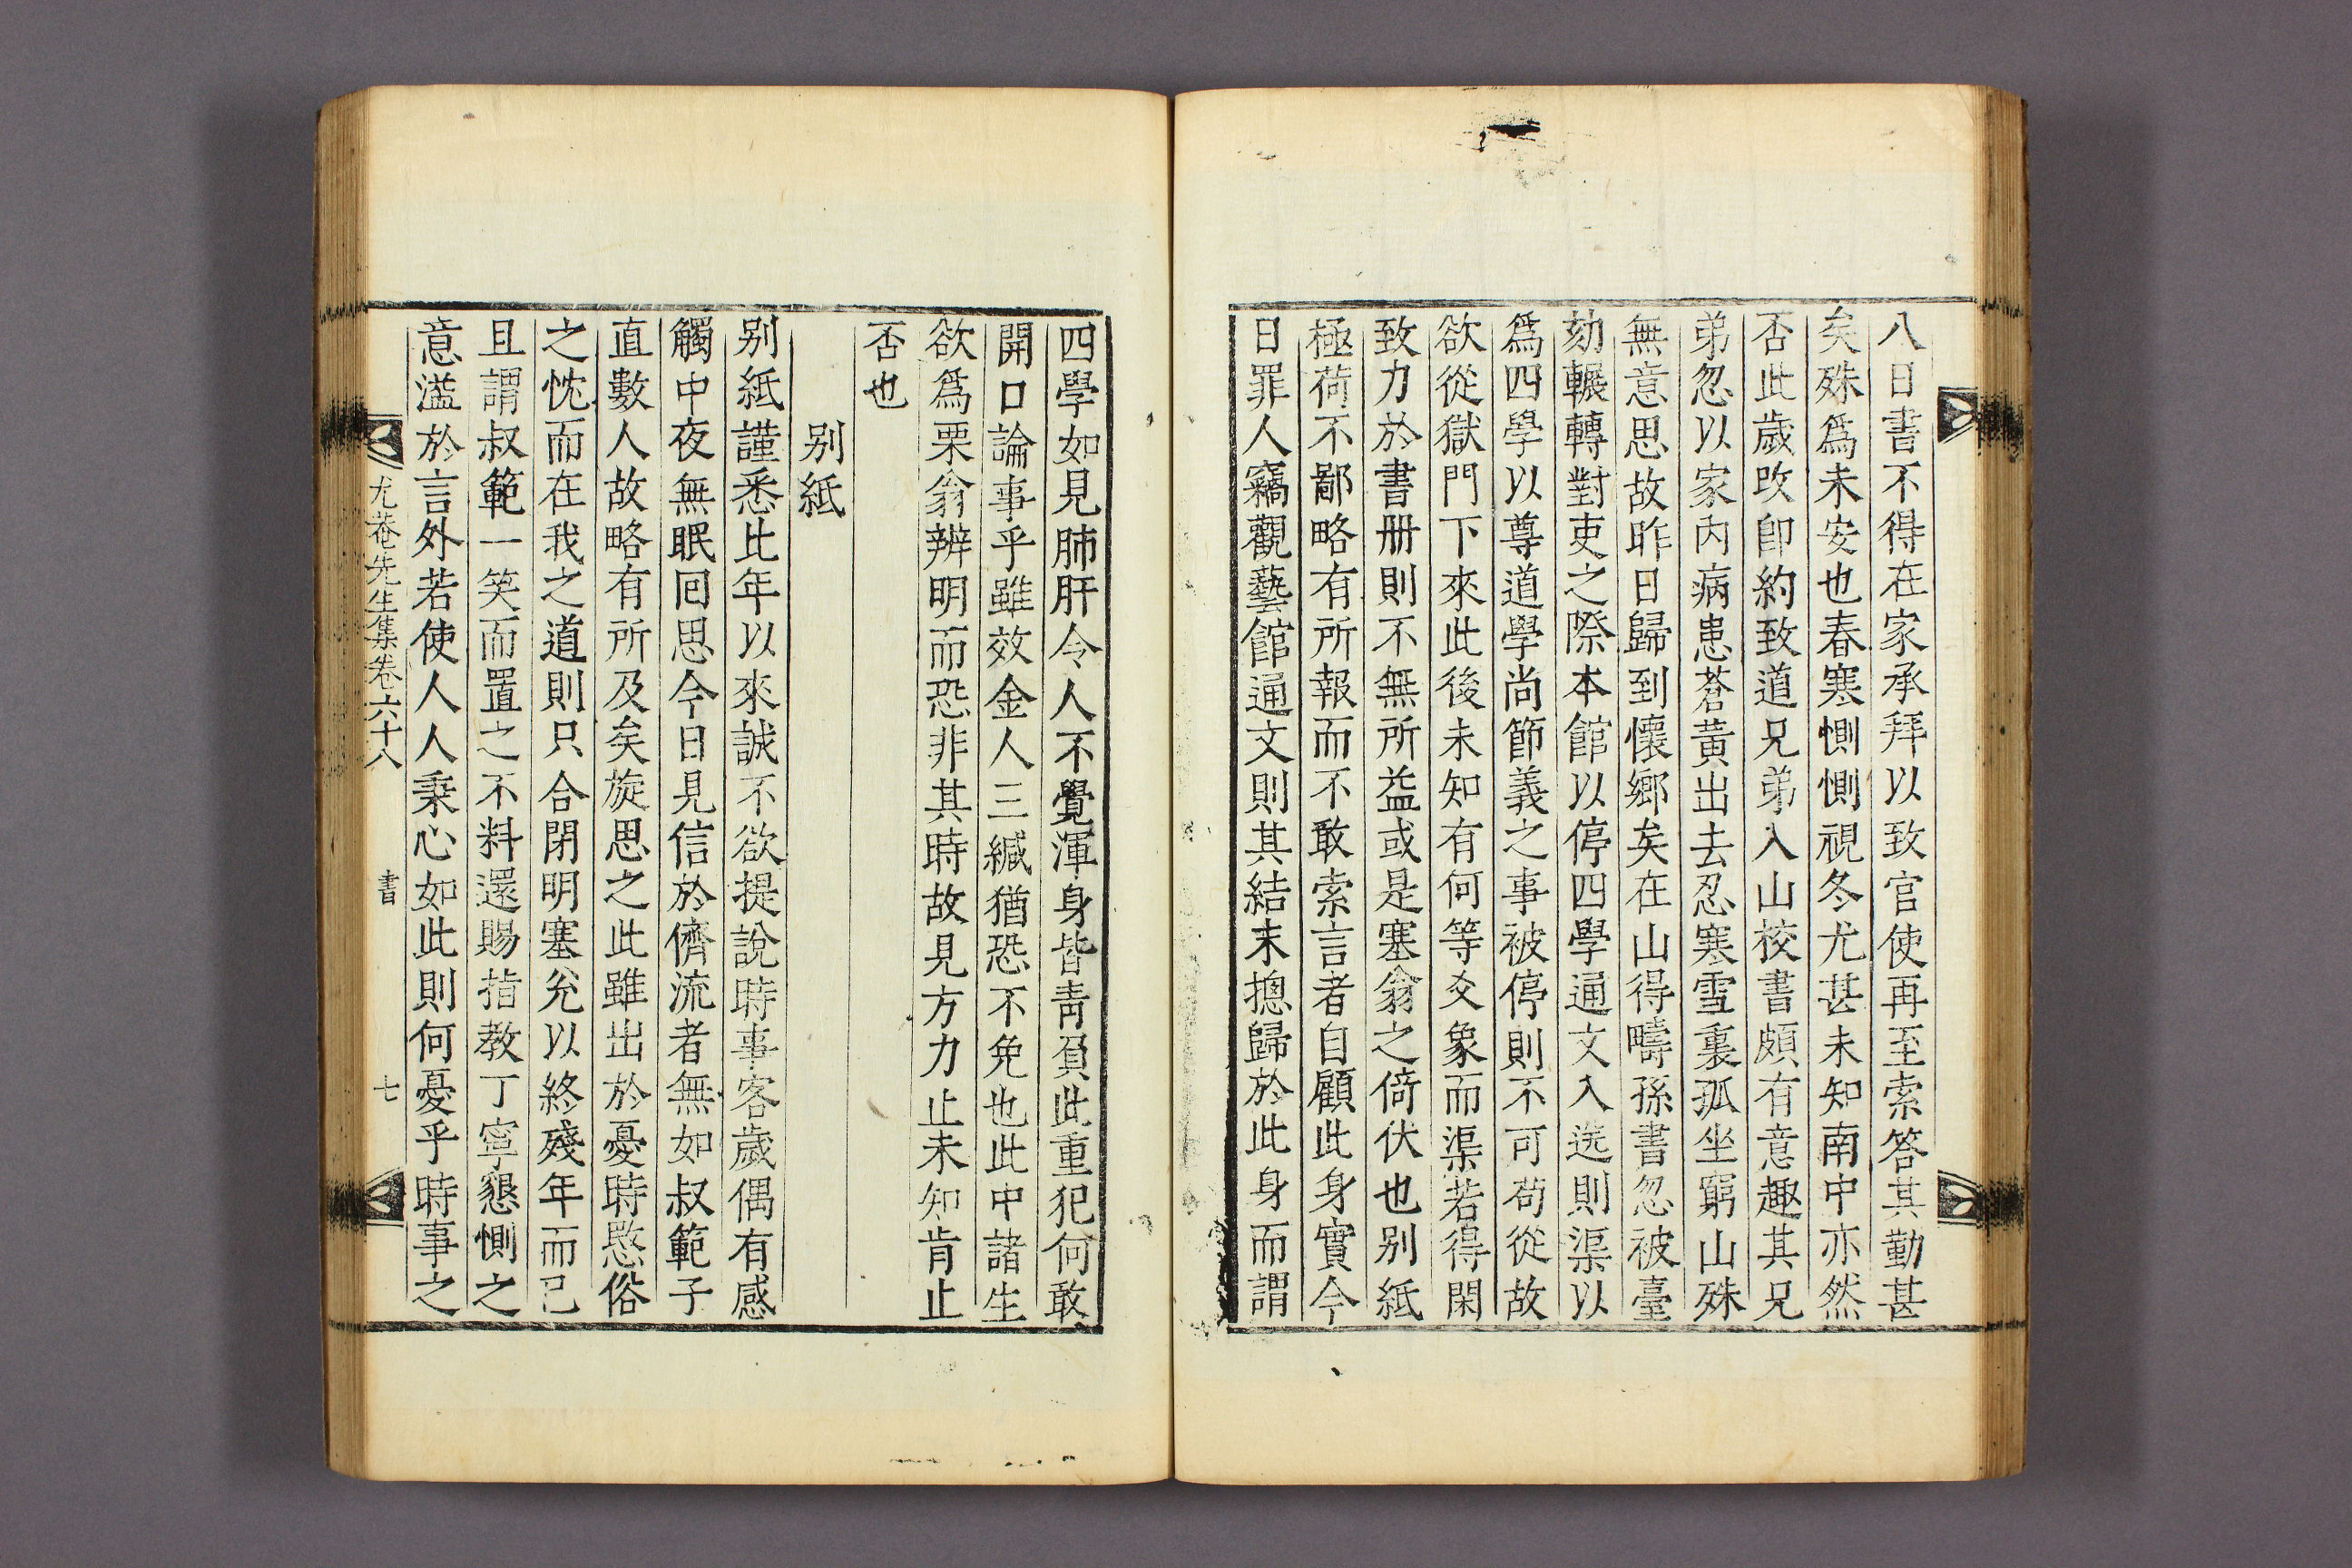 八日書不得在家承拜以致官使再至索答其勤甚
矣殊爲未安也春寒惻惻視冬尤甚未知南中亦然
否此歲改卽約致道兄弟入山校書頗有意趣其兄
弟忽以家內病患蒼黃出去忍寒雪裏孤坐窮山殊
無意思故昨日歸到懷鄉矣在山得疇孫書忽被臺
劾輾轉對吏之際本館以停四學通文入送則渠以
爲四學以尊道學尚節義之事被停則不可苟從故
欲從獄門下來此後未知有何等爻象而渠若得閑
致力於書册則不無所益或是塞翁之倚伏也别紙
極荷不鄙略有所報而不敢索言者自顧此身實今
日罪人竊觀藝館通文則其結末摠歸於此身而謂
四學如見肺肝令人不覺渾身皆靑負此重犯何敢
開口論事乎雖效金人三緘猶恐不免也此中諸生
欲爲栗翁辨明而恐非其時故見方力止未知肯止
否也
别紙
别紙謹悉比年以來誠不欲提說時事客歲偶有感
觸中夜無眠回思今日見信於儕流者無如叔範子
直數人故略有所及矣旋思之此雖出於憂時愍俗
之忱而在我之道則只合閉明塞兊以終殘年而已
且謂叔範一笑而置之不料還賜指教丁寧懇惻之
意溢於言外若使人人秉心如此則何憂乎時事之
尤菴先生集卷六十八 書 七